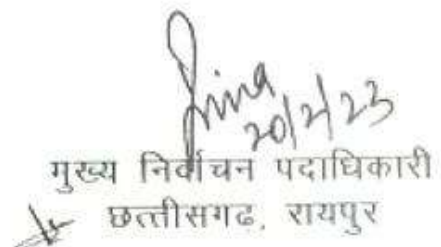 20/2/23
मुख्य निर्वाचन पदाधिकारी
छत्तीसगढ, रायपुर